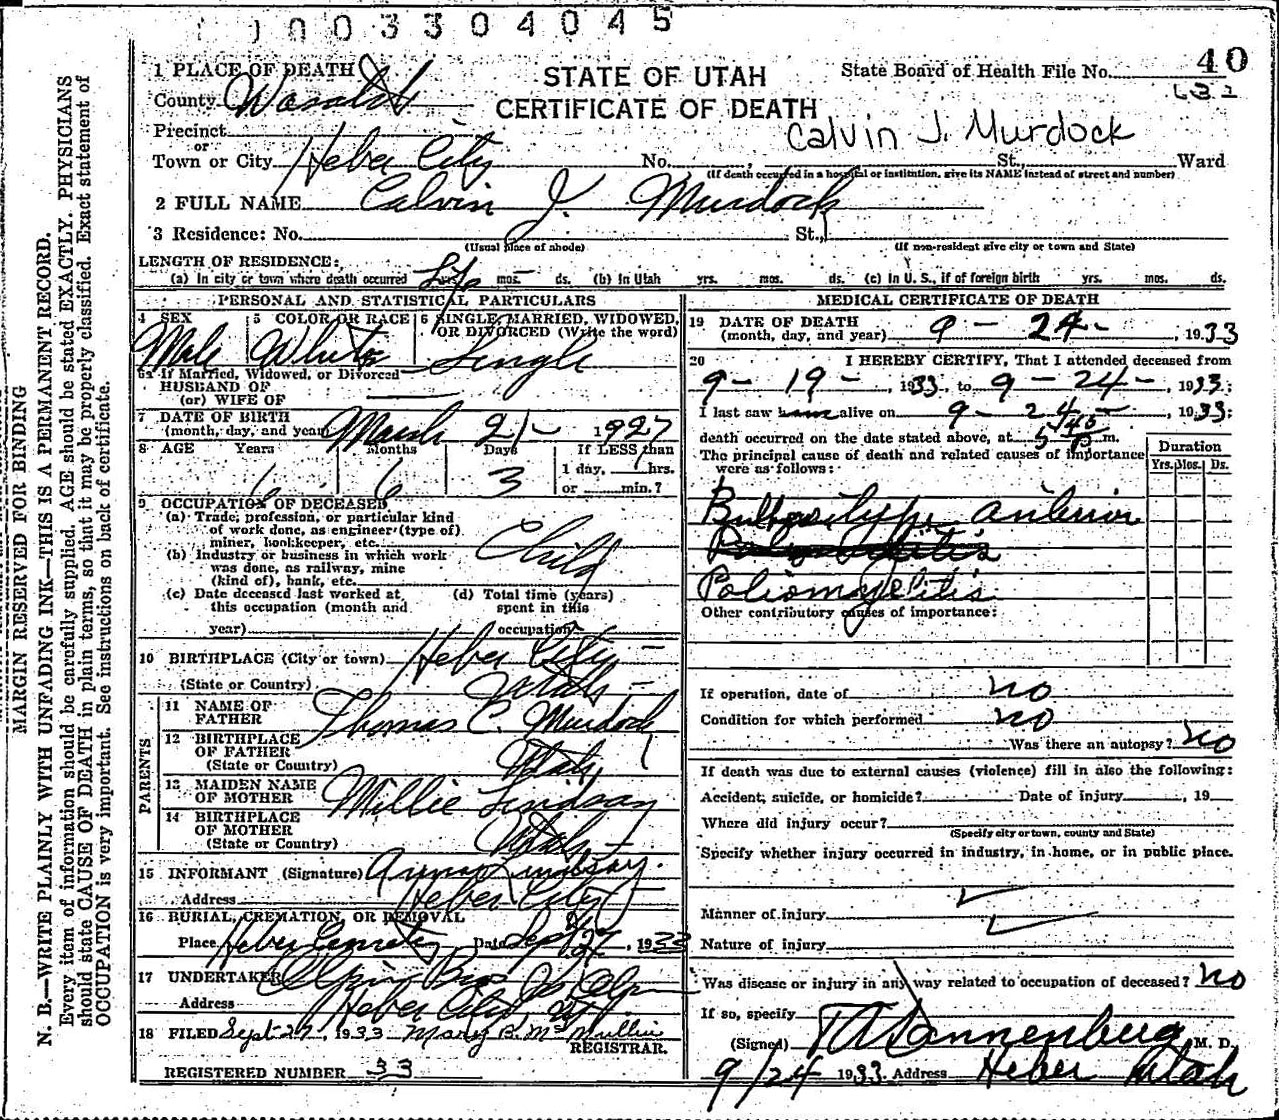 0003304045
40
632
1 PLACE OF DEATH
STATE OF UTAH
State Board of Health File No.
County Wasatch
CERTIFICATE OF DEATH
Calvin J. Murdock
Precinct
or
Town or City Heber City No. , St., Ward
(If death occurred in a hospital or institution, give its NAME instead of street and number)
2 FULL NAME Calvin J. Murdock
3 Residence: No. St.,
(Usual place of abode) (If non-resident give city or town and State)
LENGTH OF RESIDENCE:
(a) In city or town where death occurred Life yrs. mos. ds. (b) In Utah yrs. mos. ds. (c) In U.S., if of foreign birth yrs. mos. ds.
PERSONAL AND STATISTICAL PARTICULARS
4 SEX Male
5 COLOR OR RACE White
6 SINGLE, MARRIED, WIDOWED, OR DIVORCED (Write the word) Single
6a If Married, Widowed, or Divorced
HUSBAND OF
(or) WIFE OF
7 DATE OF BIRTH
(month, day, and year) March 21- 1927
8 AGE Years Months Days If LESS than
6 6 3 1 day, hrs.
or min.?
9 OCCUPATION OF DECEASED
(a) Trade, profession, or particular kind
of work done, as engineer (type of)
miner, bookkeeper, etc.
Child
(b) Industry or business in which work
was done, as railway, mine
(kind of), bank, etc.
(c) Date deceased last worked at (d) Total time (years)
this occupation (month and spent in this
year) occupation
10 BIRTHPLACE (City or town) Heber City -
(State or Country) Utah -
PARENTS
11 NAME OF
FATHER Thomas C. Murdock
12 BIRTHPLACE
OF FATHER
(State or Country) Utah
13 MAIDEN NAME
OF MOTHER Millie Lindsay
14 BIRTHPLACE
OF MOTHER
(State or Country) Utah -
15 INFORMANT (Signature) Anna Lindsay.
Address Heber City
16 BURIAL, CREMATION, OR REMOVAL
Place Heber Cemetery Date Sept 27, 1933
17 UNDERTAKER Olpin Bros
Address Heber City, Ut.
18 FILED Sept-27, 1933 Mary B. McMullin
REGISTRAR.
REGISTERED NUMBER 33
MEDICAL CERTIFICATE OF DEATH
19 DATE OF DEATH
(month, day, and year) 9 - 24 - , 1933
20 I HEREBY CERTIFY, That I attended deceased from
9 - 19 - , 1933, to 9 - 24 - , 1933:
I last saw him alive on 9 - 24 - , 1933:
death occurred on the date stated above, at 5 40 P m.
The principal cause of death and related causes of importance
were as follows:
Duration
Yrs. Mos. Ds.
anterior
Poliomyelitis
Other contributory causes of importance:
If operation, date of no
Condition for which performed no
Was there an autopsy? no
If death was due to external causes (violence) fill in also the following:
Accident, suicide, or homicide? Date of injury , 19
Where did injury occur?
(Specify city or town, county and State)
Specify whether injury occurred in industry, in home, or in public place.
Manner of injury
Nature of injury
Was disease or injury in any way related to occupation of deceased? no
If so, specify
(Signed) Dannenberg, M. D.
9/24 1933 Address Heber Utah
MARGIN RESERVED FOR BINDING
N. B.—WRITE PLAINLY WITH UNFADING INK—THIS IS A PERMANENT RECORD.
Every item of information should be carefully supplied. AGE should be stated EXACTLY. PHYSICIANS
should state CAUSE OF DEATH in plain terms, so that it may be properly classified. Exact statement of
OCCUPATION is very important. See instructions on back of certificate.